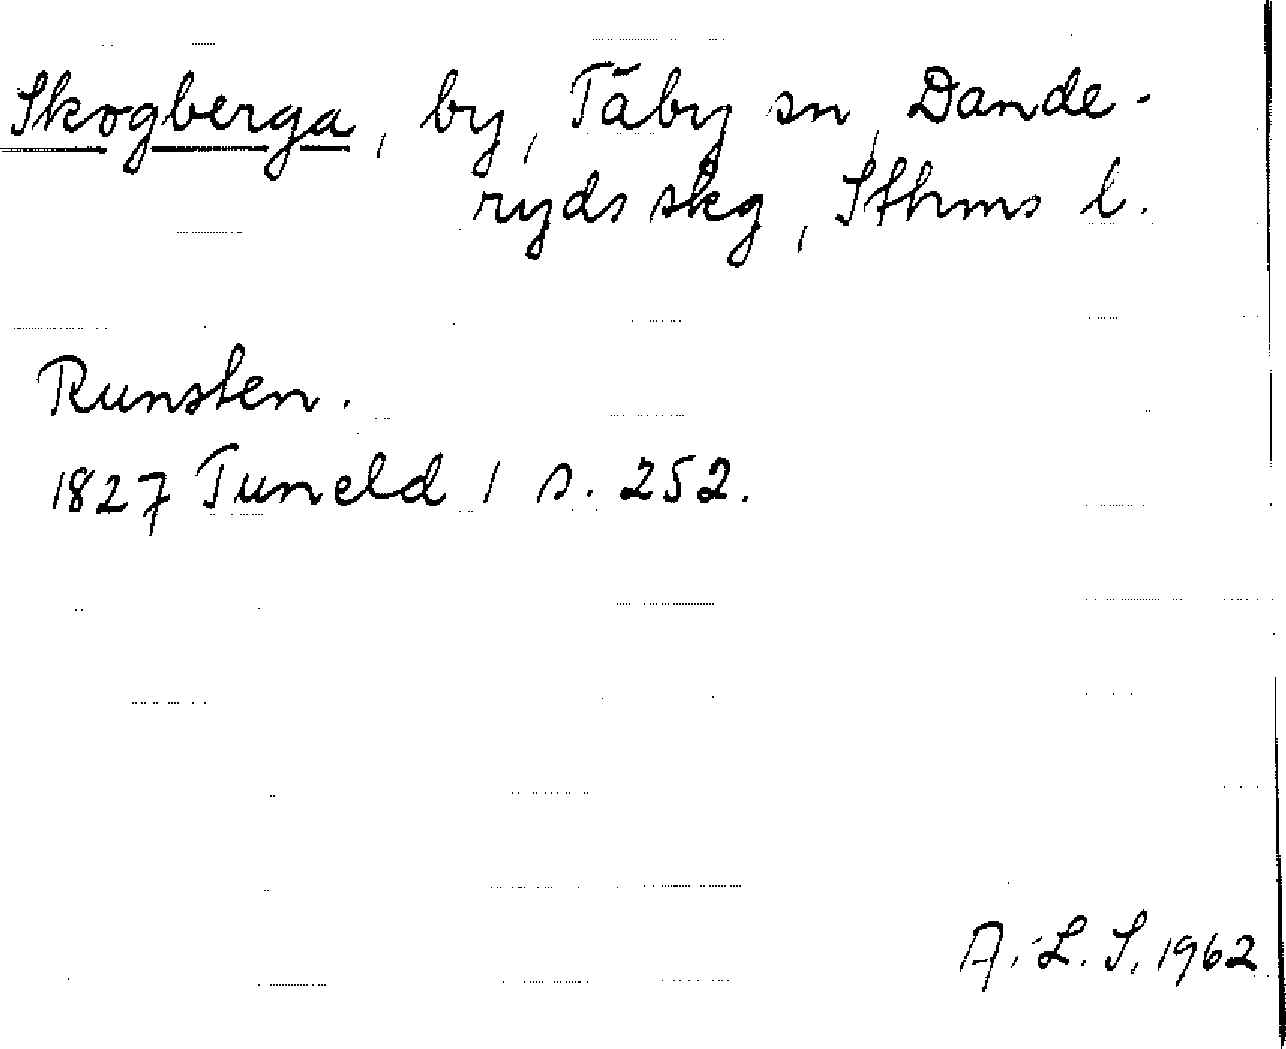 Skogberga, by, Täby sn, Dande-
ryds skg, Sthms l.
Runsten.
1827 Tuneld 1 s. 252.
A.-L. S. 1962